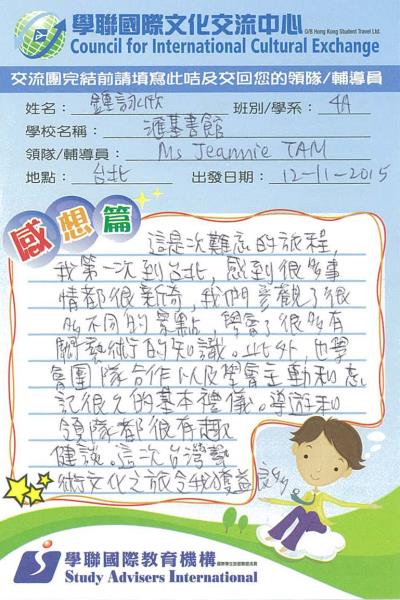 學聯國際文化交流中心 O/B Hong Kong Student Travel Ltd.
Council for International Cultural Exchange
交流團完結前請填寫此咭及交回您的領隊/輔導員
姓名： 鍾詠欣 班別/學系： 4A
學校名稱： 滙基書館
領隊/輔導員： Ms Jeannie TAM
地點： 台北 出發日期： 12-11-2015
感想篇
這是次難忘的旅程，
我第一次到台北，感到很多事
情都很新奇，我們參觀了很
多不同的景點，學會了很多有
關藝術的知識。此外，也學
會團隊合作以及學會主動和忘
記很久的基本禮儀。導遊和
領隊都很有趣
健談。這次台灣藝
術文化之旅令我獲益良多。
學聯國際教育機構
Study Advisers International